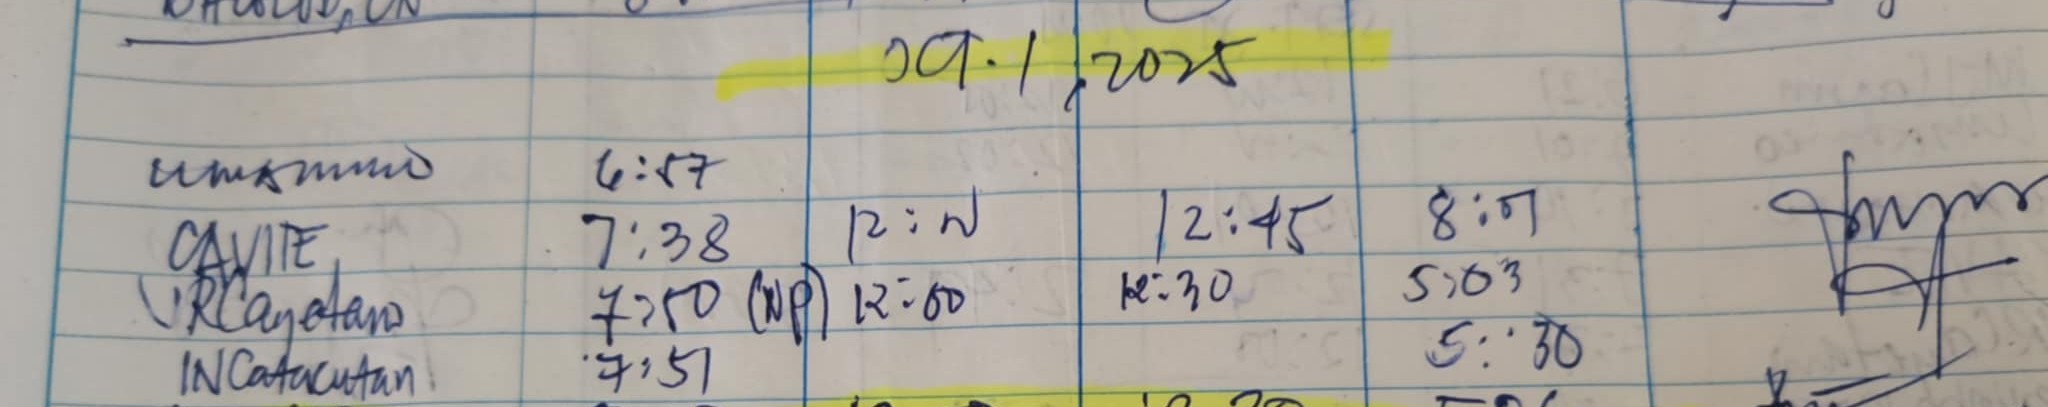 BACOLOD, CN
OCT. 1, 2025
6:57
CAVITE 7:38 12:N 12:45 8:01
JRCayetano 7:50 (NP) 12:00 12:30 5:03
INCatacutan 7:51 5:30